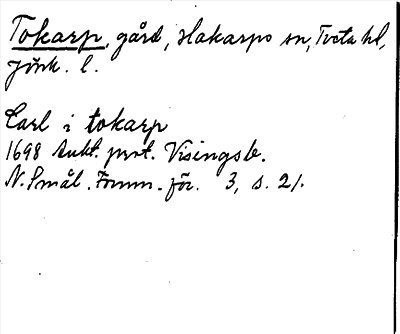 Tokarp, gård, Hakarps sn, Tveta hd,
Jönk. l.
Carl i tokarp
1698 Aukt. prot. Visingsb.
N. Smål. Fornm. för. 3, s. 21.